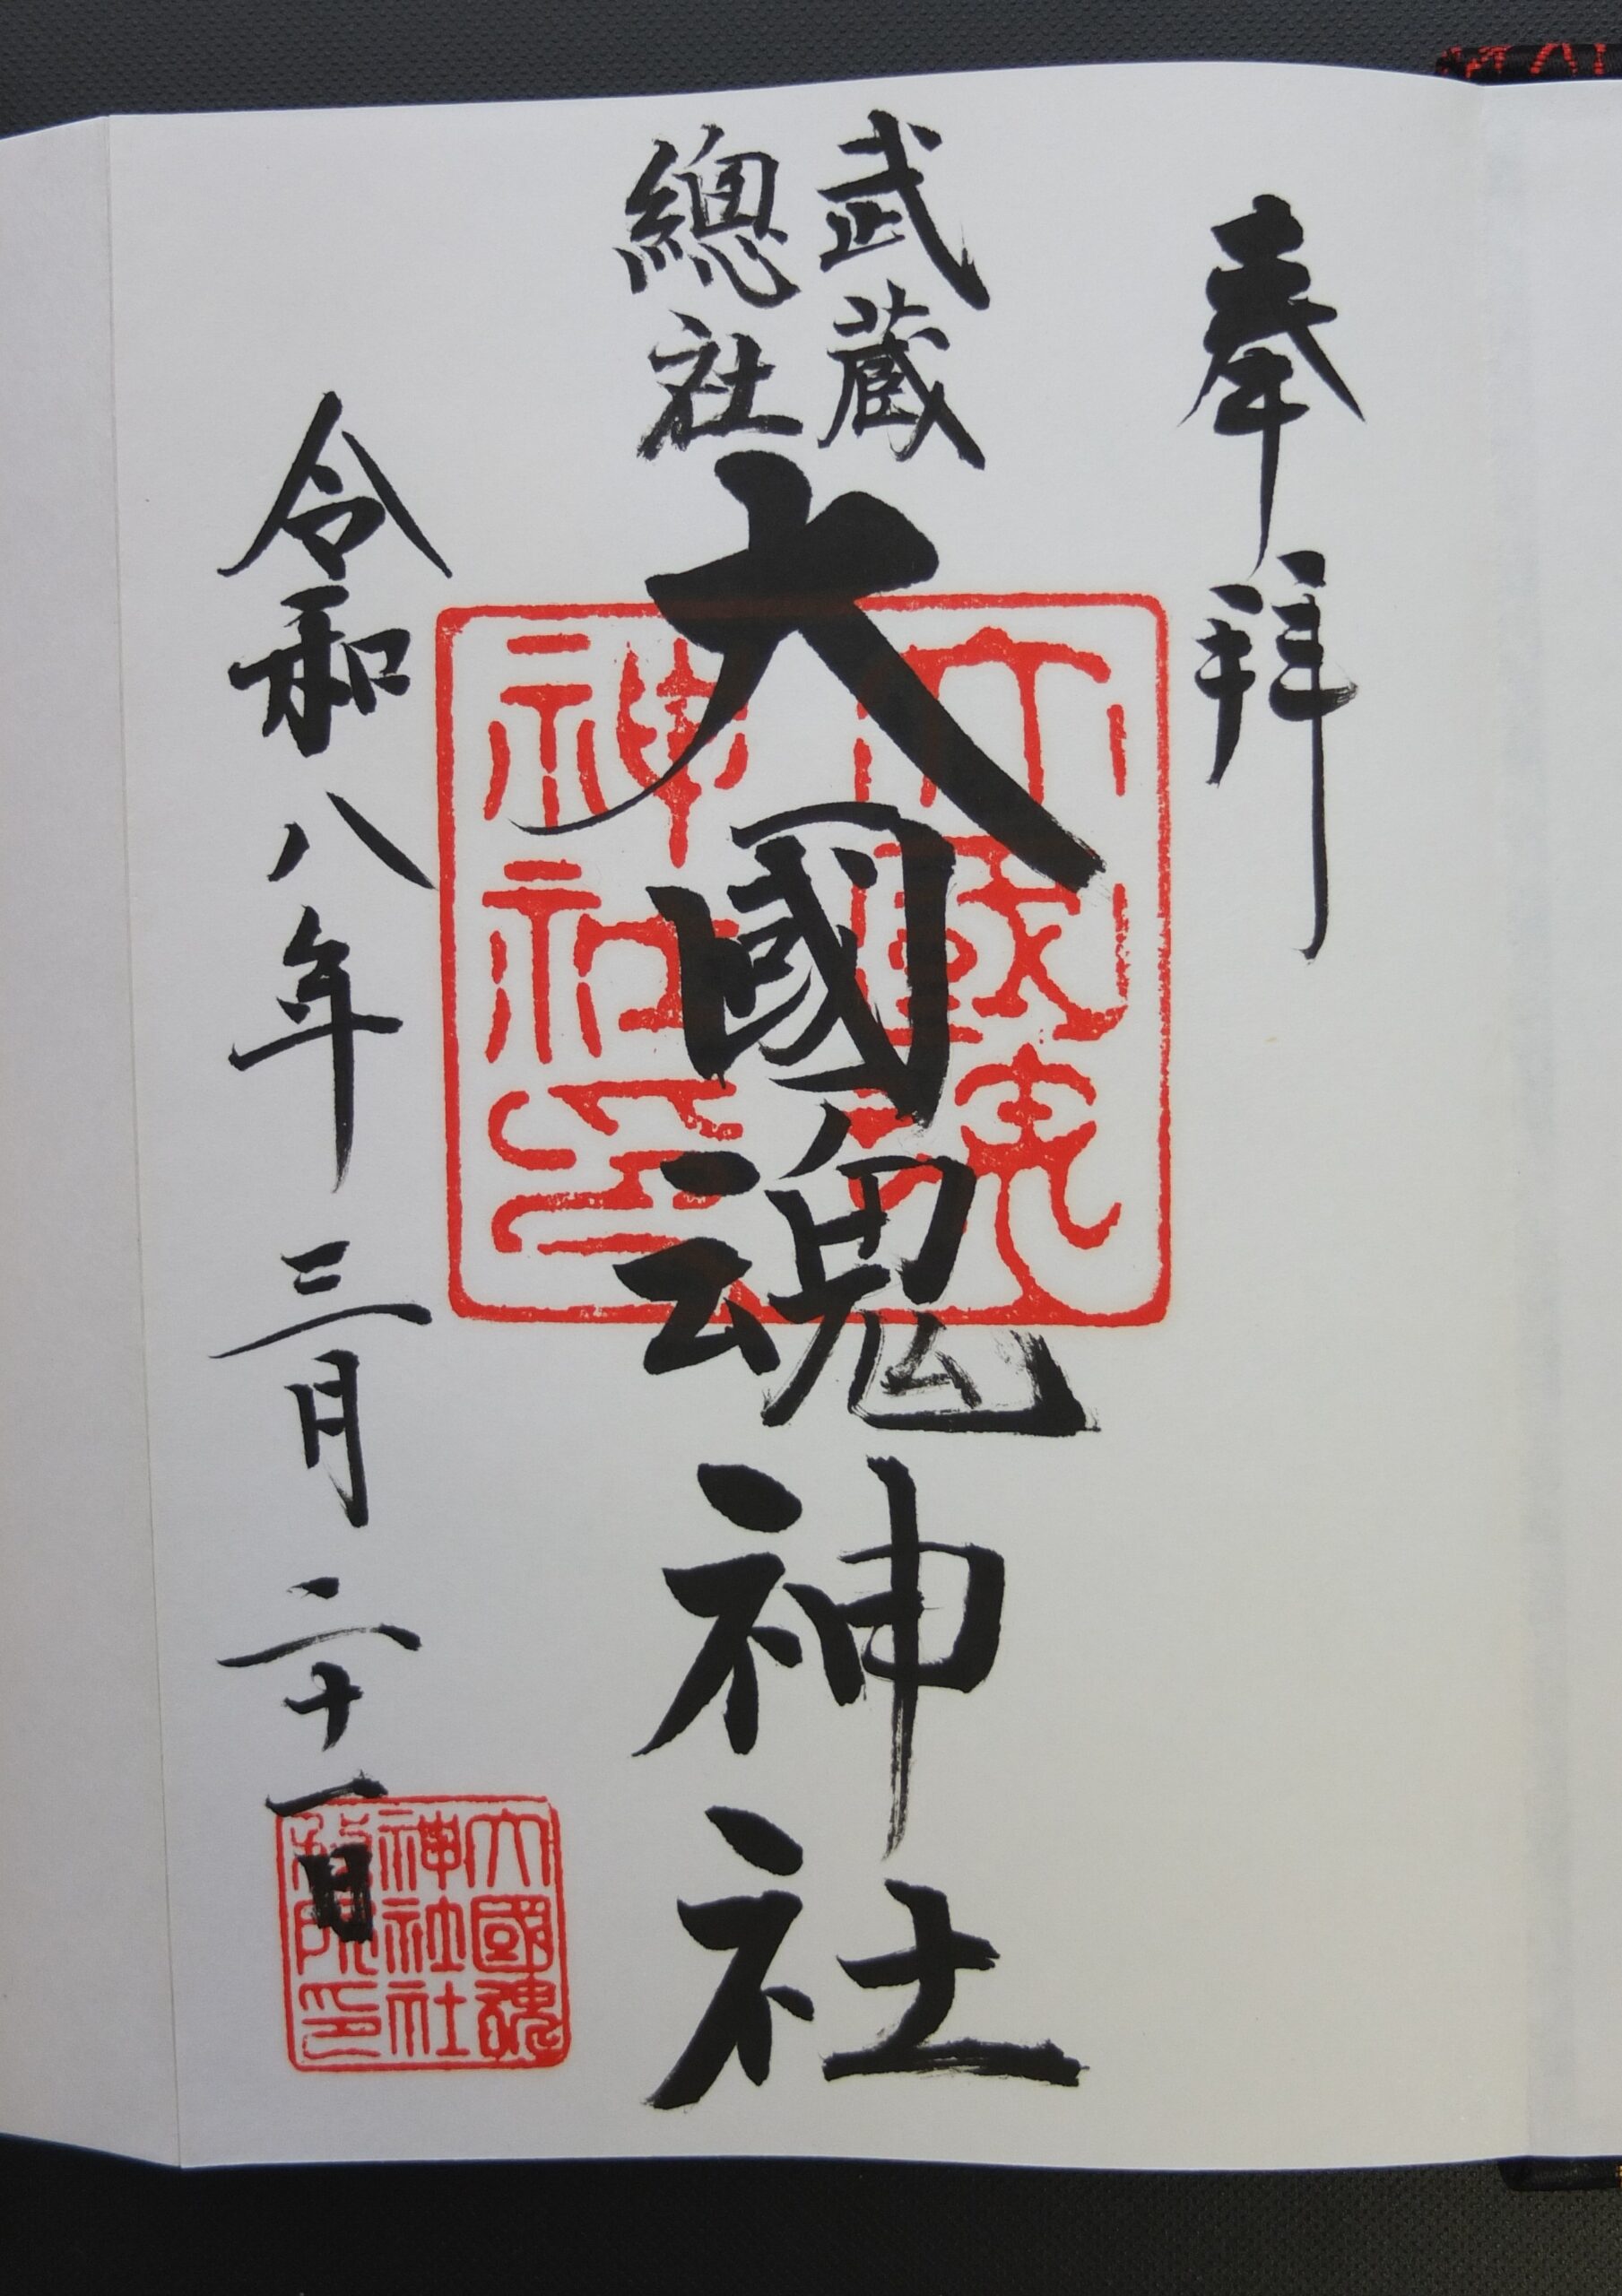 奉拝
武蔵
總社
大國魂神社
令和八年三月二十一日
大國魂
神社印
大國魂
神社社
務所印